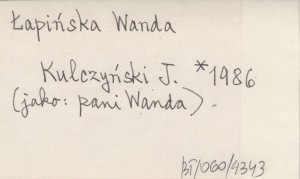 Łapińska Wanda
Kulczyński J. *1986
(jako: pani Wanda).
BI/060/4343